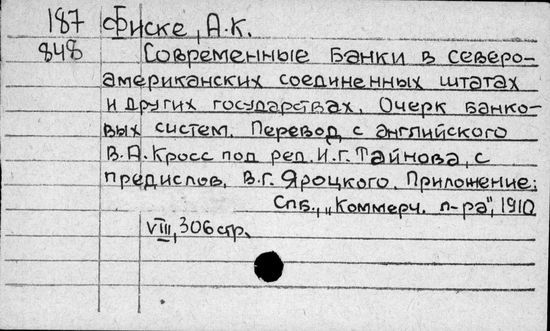 187 Фиске, А.К.
848 Современные банки в северо-
американских соединенных штатах
и других государствах. Очерк банко-
вых систем. Перевод с английского
В.А.Кросс под ред. И.Г.Тайнова, с
предислов. В.Г. Яроцкого. Приложение:
Спб., „Коммерч. л-ра", 1910
VIII, 306 стр.